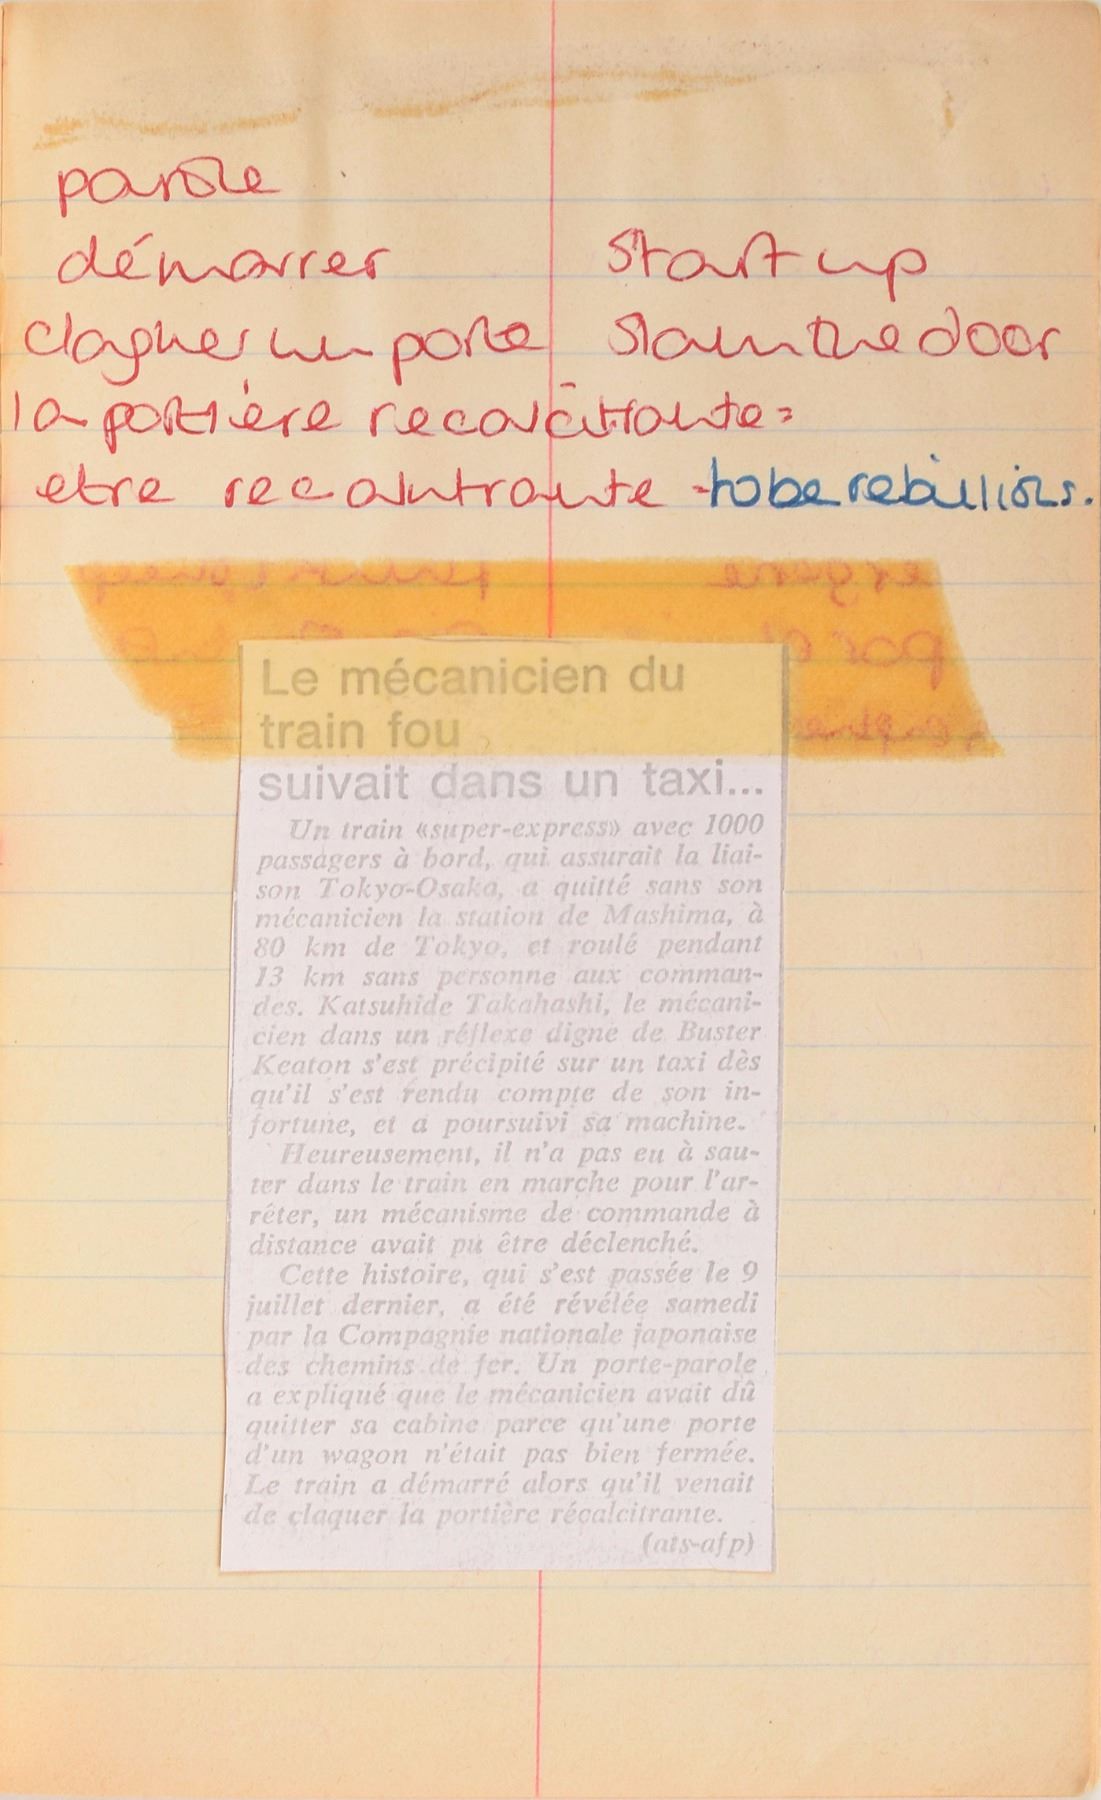 parole
démarrer start up
claquer un porte slam the door
la portière recalcitrante =
etre recalntrante - to be rebillious.
Le mécanicien du
train fou
suivait dans un taxi...
Un train «super-express» avec 1000
passagers à bord, qui assurait la liai-
son Tokyo-Osaka, a quitté sans son
mécanicien la station de Mashima, à
80 km de Tokyo, et roulé pendant
13 km sans personne aux comman-
des. Katsuhide Takahashi, le mécani-
cien dans un réflexe digne de Buster
Keaton s'est précipité sur un taxi dès
qu'il s'est rendu compte de son in-
fortune, et a poursuivi sa machine.
Heureusement, il n'a pas eu à sau-
ter dans le train en marche pour l'ar-
rêter, un mécanisme de commande à
distance avait pu être déclenché.
Cette histoire, qui s'est passée le 9
juillet dernier, a été révélée samedi
par la Compagnie nationale japonaise
des chemins de fer. Un porte-parole
a expliqué que le mécanicien avait dû
quitter sa cabine parce qu'une porte
d'un wagon n'était pas bien fermée.
Le train a démarré alors qu'il venait
de claquer la portière récalcitrante.
(ats-afp)